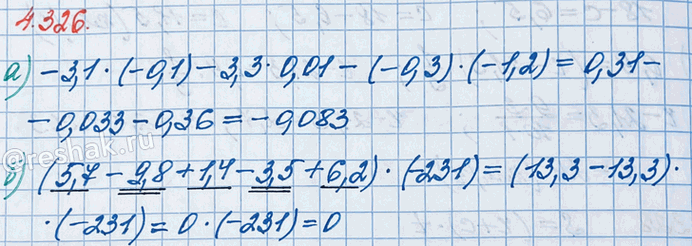 4.326.
а) -3,1 · (-0,1) - 3,3 · 0,01 - (-0,3) · (-1,2) = 0,31 -
- 0,033 - 0,36 = -0,083
б) (5,7 - 9,8 + 1,4 - 3,5 + 6,2) · (-231) = (13,3 - 13,3) ·
· (-231) = 0 · (-231) = 0
@reshak.ru